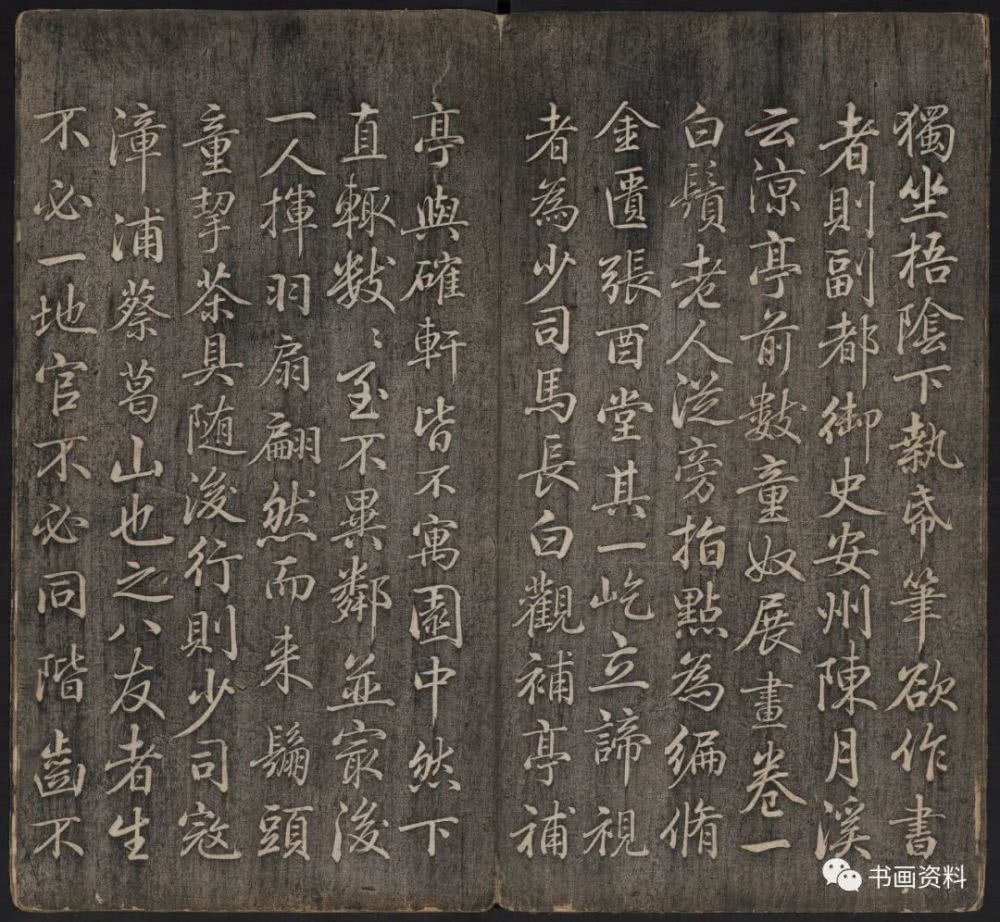 獨坐梧陰下執帋筆欲作書
者則副都御史安州陳月溪
云涼亭前數童奴展畫卷一
白鬚老人從旁指點為編脩
金匱張酉堂其一屹立諦視
者為少司馬長白觀補亭補
亭與確軒皆不寓園中然下
直輒數〻至不異鄰並㝡後
一人揮羽扇翩然而来鬅頭
童挈茶具随後行則少司寇
漳浦蔡葛山也之八友者生
不必一地官不必同階齒不
书画资料